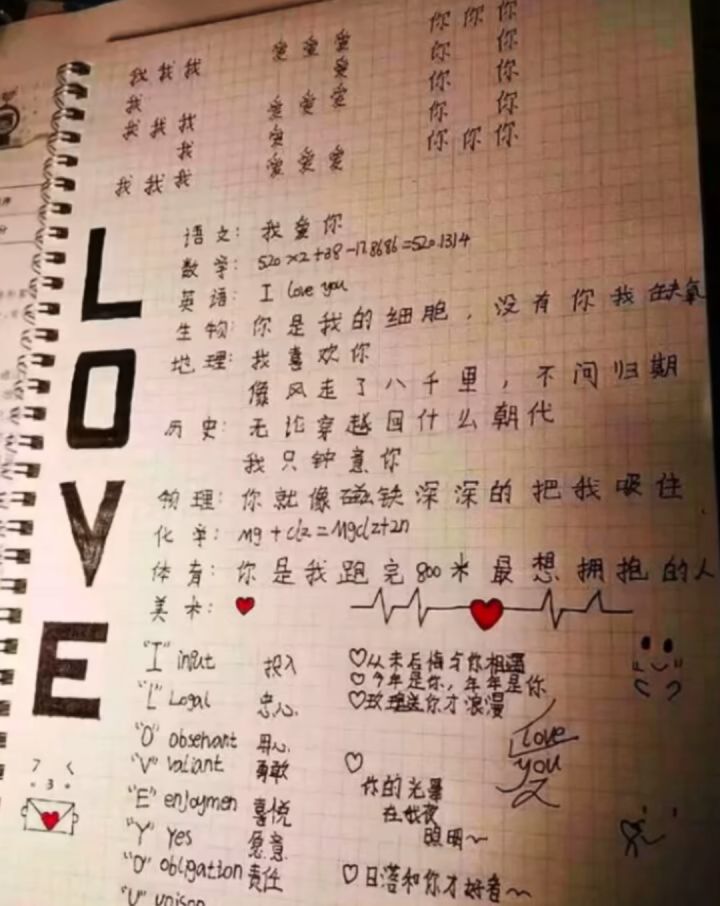 我 我 我 爱 爱 爱 你 你 你
我 爱 你 你
我 我 我 爱 爱 爱 你 你
我 爱 你 你
我 我 我 爱 爱 爱 你 你 你
LOVE
语文: 我爱你
数学: 520×2+38-178686=520.1314
英语: I love you
生物: 你是我的细胞,没有你我会缺氧
地理: 我喜欢你
像风走了八千里,不问归期
历史: 无论穿越回什么朝代
我只钟意你
物理: 你就像磁铁深深的把我吸住
化学: Mg+Clz=Mgclz+zn
体育: 你是我跑完800米最想拥抱的人
美术:
"I" input 投入
"L" Logal 忠心
"O" observant 用心
"V" valiant 勇敢
"E" enjoymen 喜悦
"Y" Yes 愿意
"O" obligation 责任
"U" unison
♡从未后悔与你相遇
♡今年是你,年年是你
♡玫瑰送你才浪漫
♡
你的光晕
在我夜
照明~
♡日落和你才好看~
love
you